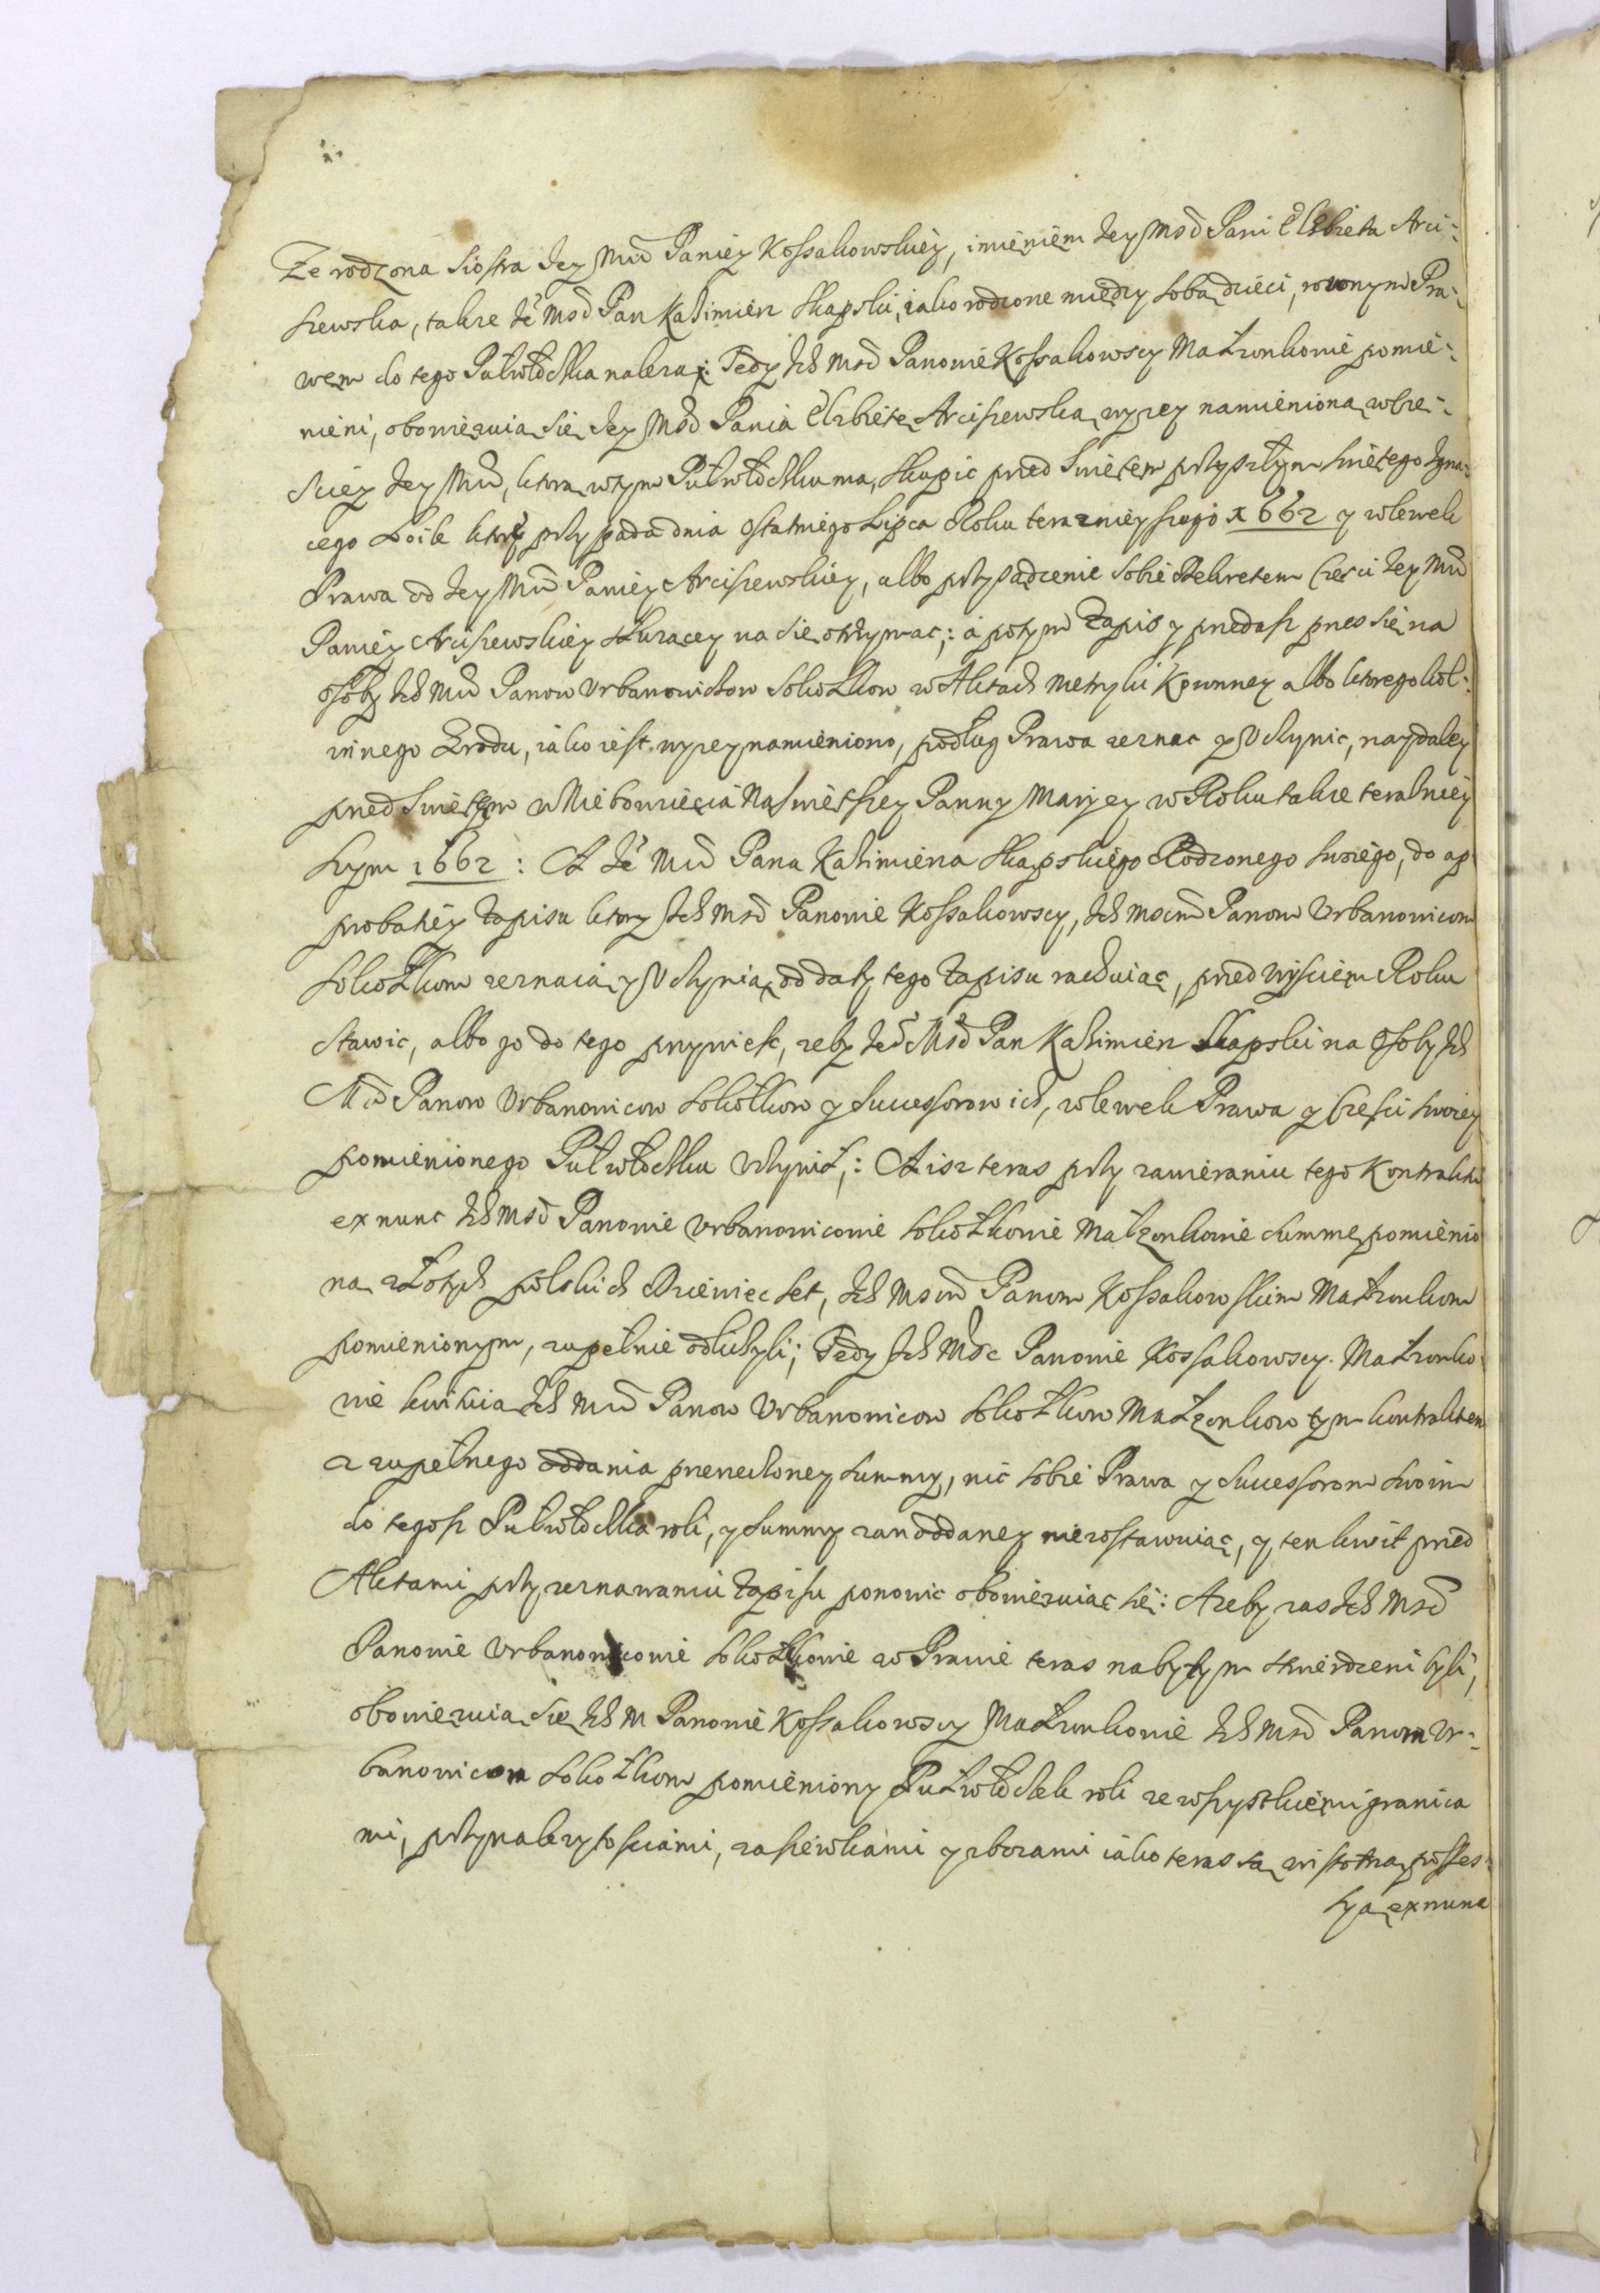 Ze rodzona Siostra Jey Mći Paniey Kossakowskiey, imieniem Jey Mść Pani Elzbieta Arci-
szewska, takze Je Mść Pan Kazimierz Skapski, iako rodzone między sobą dzieci, rownym Pra-
wem do tego Pułwłoczka nalezą: Tedy Ich Mść Panowie Kossakowscy Małzonkowie pomie-
nieni, obowięzuią się Jey Mść Panią Elzbietę Arciszewską wyzey namienioną w Czę-
sciey Jey Mći, ktorą w tym Pułwłoczku ma, skupic przed Swiętem przyszłym swiętego Igna-
cego Loile ktore przypada dnia ostatniego Lipca Roku teraznieyszego 1662 y wlewek
Prawa od Jey Mći Paniey Arciszewskiey, albo przysądzenie sobie Dekretem Częsci Jey Mći
Paniey Arciszewskiey słuzącey na się otrzymac; a potym Zapis y przedasz przes się na
osoby Ich Mći Panow Urbanowiczow Sokołkow w Aktach Metryki Koronney albo ktoregokol-
wi nego Grodu, iako iest wyzey namieniono, podług Prawa zeznac y Uczynic, naydaley
przed Swiętem w Niebowzięcia Naswiętszey Panny Maryey w Roku takze terazniey
szym 1662: A Je Mći Pana Kazimierza Skapskiego Rodzonego swoiego, do ap
probatiey Zapisu ktory Ich Mść Panowie Kossakowscy, Ich Msciom Panom Urbanowicom
Sokołkom zeznaią y Uczynią, od daty tego Zapisu rachuiąc, przed wysciem Roku
stawic, albo go do tego przywiesc, zeby Je Mść Pan Kazimierz Skapski na Osoby Ich
Mći Panow Urbanowicow Sokołkow y Successorow ich, wlewek Prawa y Częsci swoiey
pomienionego Pułwłoczku Uczynił,: A isz teras przy zawieraniu tego Kontraktu
ex nunc Ich Mść Panowie Urbanowicowie Sokołkowie Małzonkowie summę pomienio
ną złotych polskich Dziewiec set, Ich Msciom Panom Kossakowskim Małzonkom
pomienionym, zupełnie odliczyli; Tedy Ich Mśc Panowie Kossakowscy Małzonko-
wie kwituią Ich Mći Panow Urbanowicow Sokołkow Małzonkow tym kontraktem
z zupełnego oddania przerzeczoney summy, nic sobie Prawa y Successorom swoim
do tegosz Pułwłoczka roli, y summy zań oddaney niezostawuiąc, y ten kwit przed
Aktami przy zeznawaniu Zapisu ponowic obowięzuiąc się: A zeby zas Ich Mść
Panowie Urbanowicowie Sokołkowie w Prawie teras nabytym stwierdzeni byli,
obowięzuią się Ich M Panowie Kossakowscy Małzonkowie Ich Mść Panom Ur-
banowicom Sokołkom pomieniony Pułwłoczek roli ze wszystkiemi granica
mi, przynalezytosciami, zasiewkami y zbozami iako teras są w istotną posses-
syą ex nunc